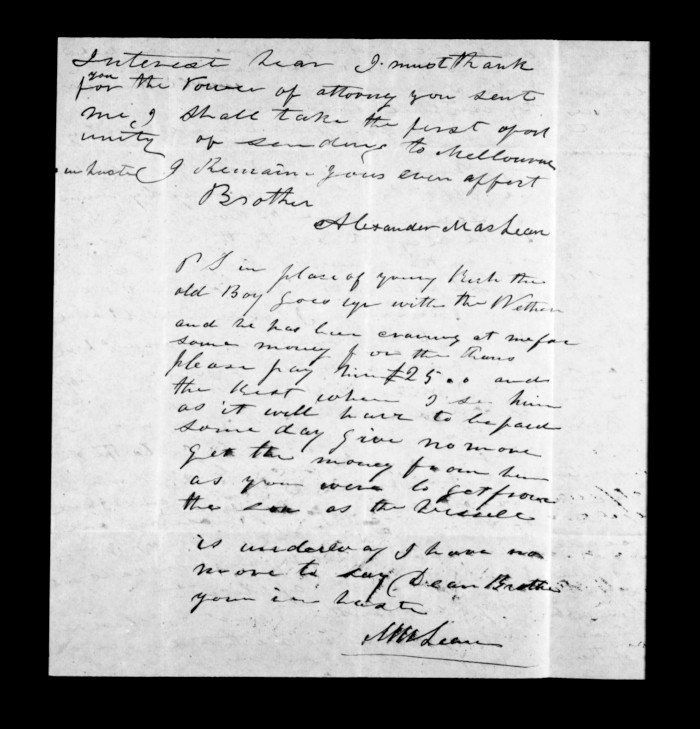 Interest hear I must thank
you
for the Power of attorney you sent
me, I shall take the first oport
unity of sending to Melbourne
in haste I Remain yours ever affect
Brother
Alexander MacLean
P S in place of young Rich the
old Boy goes up with the Wethers
and he has been craving at me for
some money for the Rams
please pay him £25.. and
the Rest when I see him
as it will have to be paid
some day give no more
get the money from him
as you were to get from
the son as the vessele
is underway I have no
more to say Dear Brother
your in haste
McLean